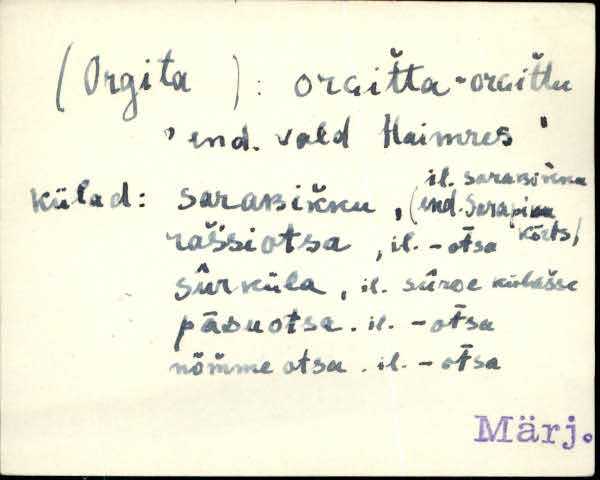 (Orgita ): orɢit̆ta - orɢit̆tu
' end. vald Haimres '
il. saraʙik̆ku
külad: saraʙik̆ku, (end. Sarapiku kõrts)
ras̆siotsa, il. - ōtsa
sûrküla, il. sûroe külas̆se
pāsuotsa. il. - ōtsa
nõm̆me otsa. il. - ōtsa
Märj.